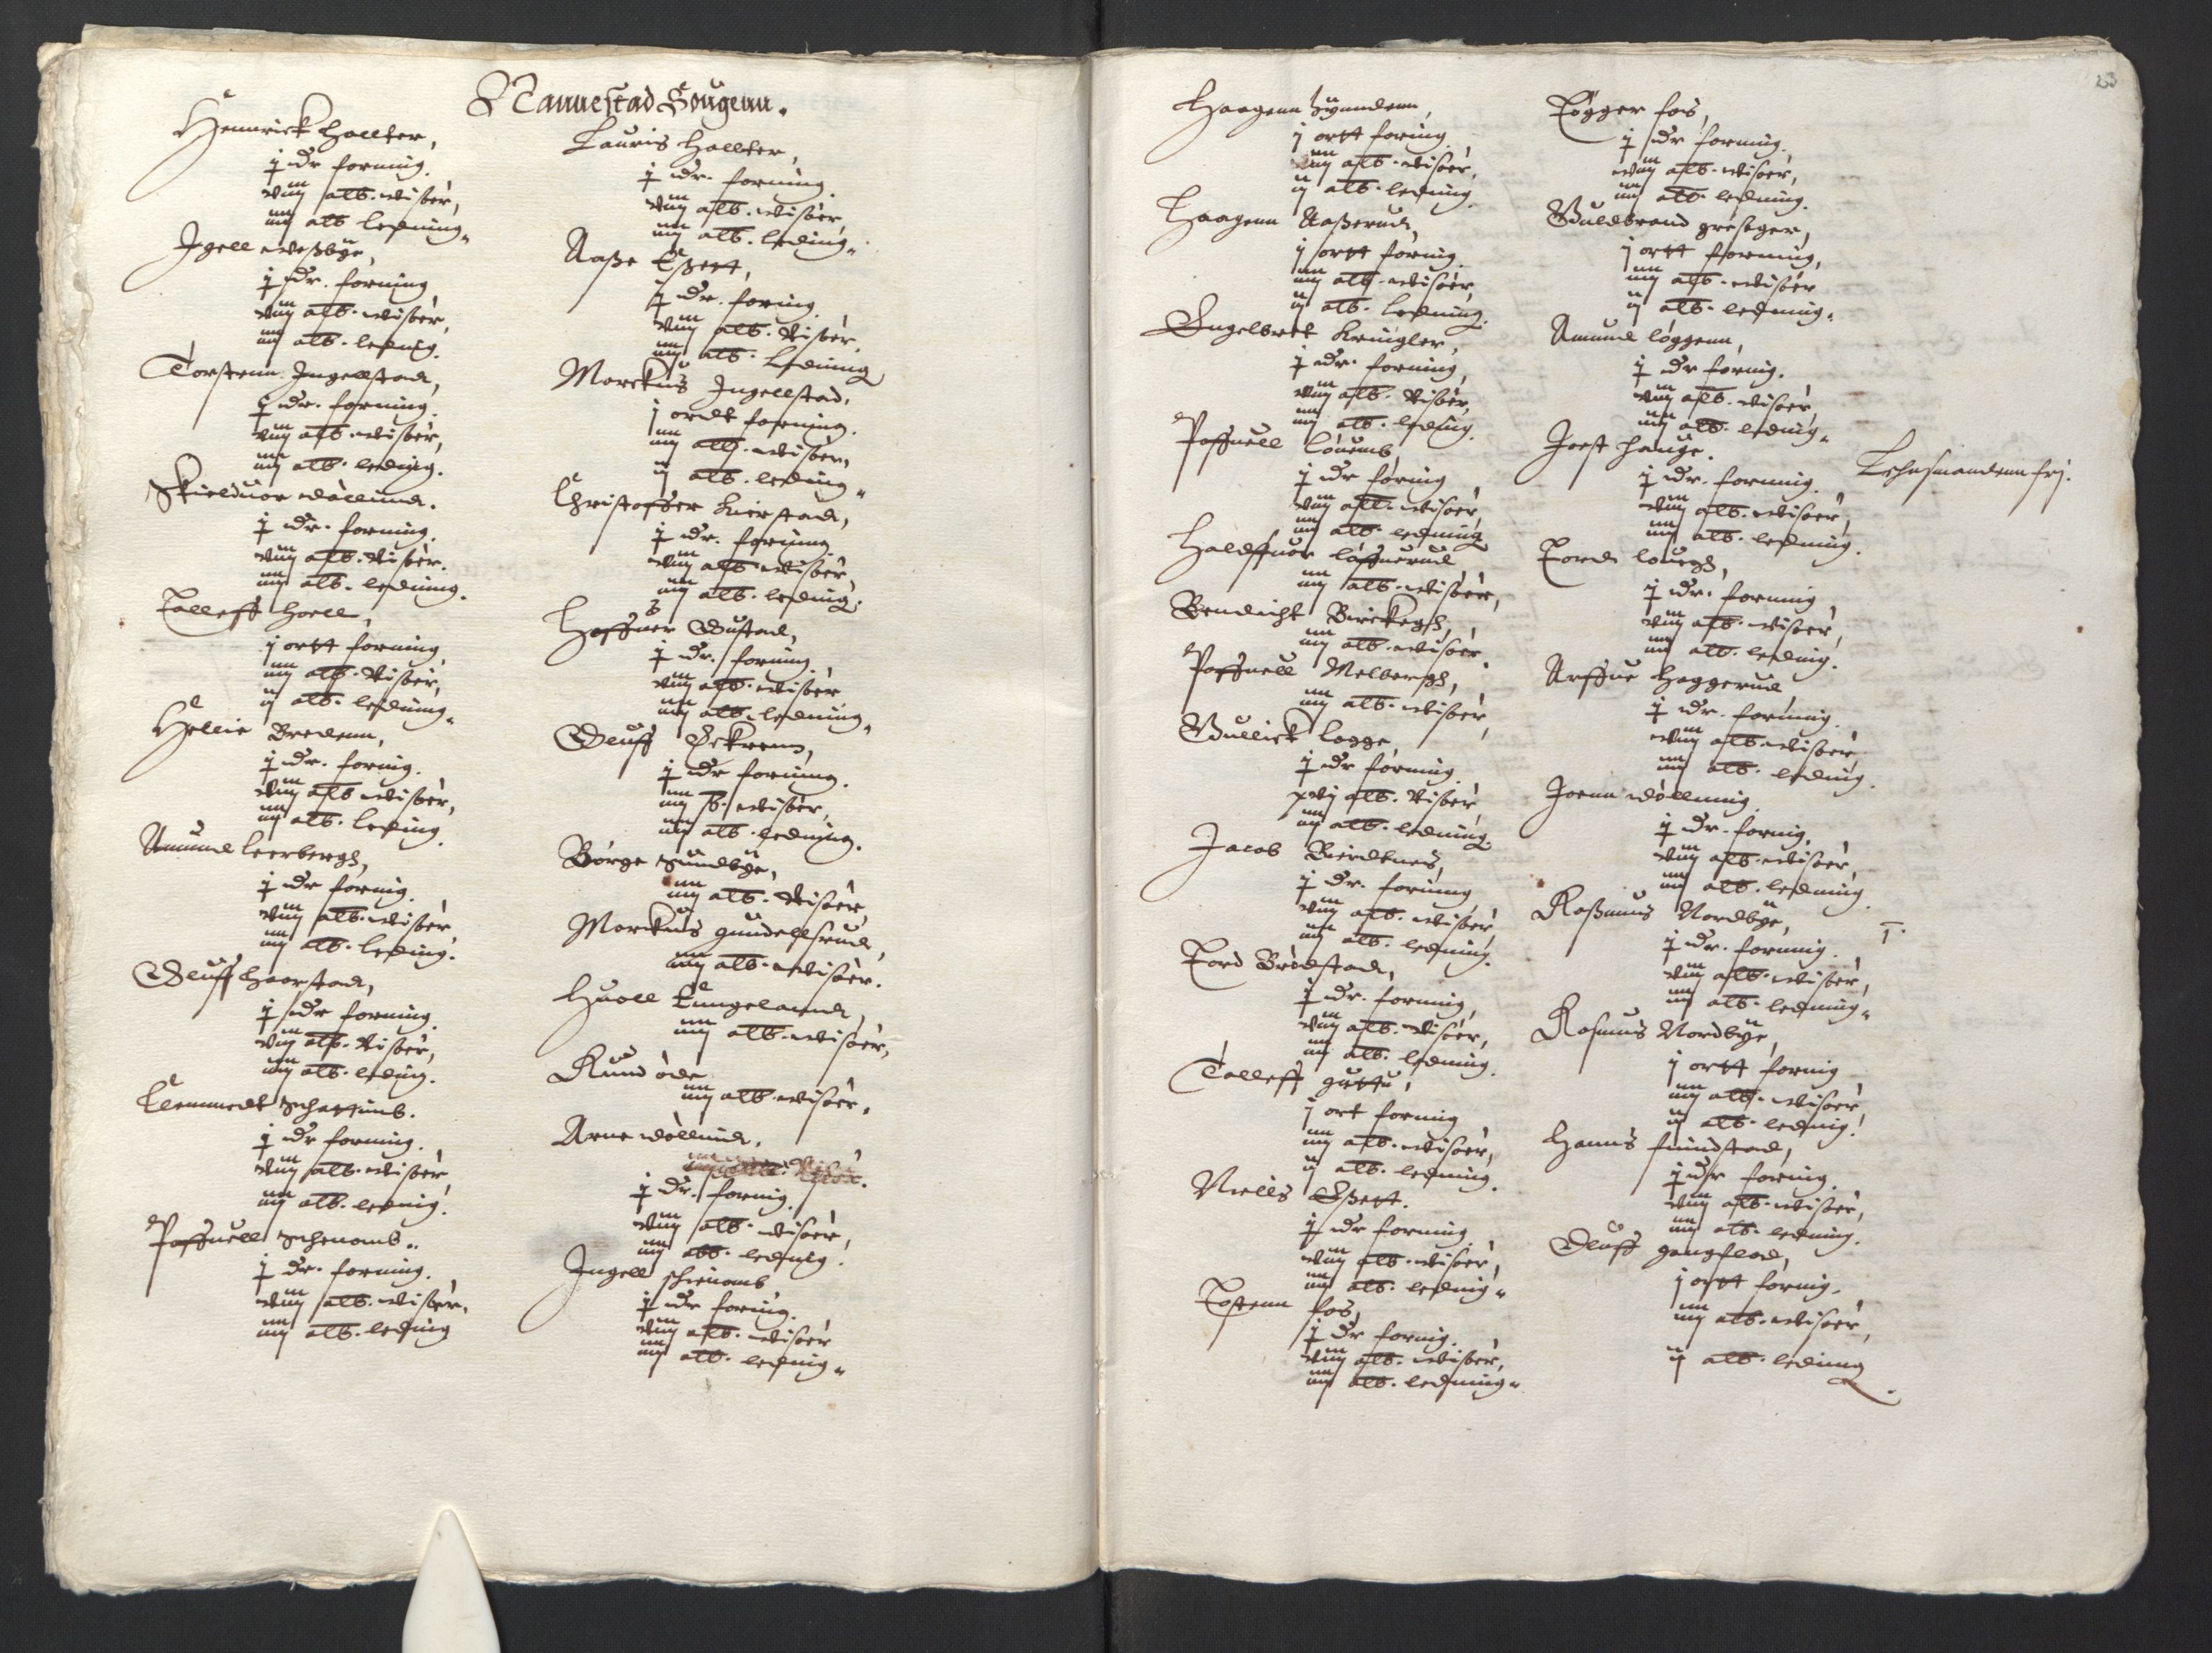 Nannestad Sougenn.
Hennrick Hallter,
j dr forning.
viij alb. wisöer,
iiij alb ledning.
Igell Westbye,
j dr. forning
viij alb. wisöer,
iiij alb. lednig.
Torstenn Ingellstad,
j dr. forning.
viij alb. wisöer,
iiij alb. leding.
Skielduor Wöllund.
j dr. forning.
viij alb. Visöer.
iiij alb. ledning.
Tolleff Hoell,
j ortt forning
iiij alb. Visöer,
ij alb. ledning.
Hellie Bredenn,
j dr. fornig.
viij alb wisöer,
iiij alb. leding.
Amund Leerbergh,
j dr fornig.
viij alb. wisöer
iiij alb. leding.
Oluff Haarstad,
j dr forning.
viij alb. Visöer,
iiij alb. leding.
Clemmedt Schattumb.
j dr forning.
viij alb. wisöer,
iiij alb. lednig.
Poffuell Schenomb.
j dr. forning.
viij alb. wisöer,
iiij alb. leding
Lauris Hallter,
j dr. forning.
viij alb. wisöer,
iiij alb. leding.
Aasse Essett,
j dr. foring.
viij alb. Visöer,
iiij alb. Ledning
Morckus Ingellstad,
j ordt forning.
iiij alb. wisöer,
ij alb. leding.
Christoffer Kierstad,
j dr. forning.
viij alb. wisöer,
iiij alb. ledning.
Haffuor Gustad,
j dr. forning.
viij alb. wisöer
iiij alb. ledning.
Oluff Eckrenn,
j dr forning.
iiij s. wisöer,
iiij alb. ledning.
Börge Sundbye,
iiij alb. Visöer,
Morckus gundellsrud,
iiij alb. wisöer.
Huoll Tungeland,
iiij alb. wisöer,
Knud öde
iiij alb. wisöer.
Arne Wöllund.
j dr. fornig.
viij alb. wisöer,
iiij alb. lednig.
Ingell Schenomb
j dr foring.
viij alb. wisöer
iiij alb. lednig.
23
Haagenn tzundenn,
j ortt foring.
iiij alb. wisöer,
ij alb. ledning.
Haagenn Aasserud,
j ortt fornig
iiij alb. wisöer,
ij alb. Ledning.
Engelbrett Kringler,
j dr. forning,
viij alb. Visöer,
iiij alb. leding.
Poffuell Löuemb,
j dr forning
viij alb. wisöer,
iiij alb. ledning
Haldffuor Löffuerud
iiij alb. wisöer,
Bendicht Birckegh,
iiij alb. wisöer.
Poffuell Melbergh,
iiij alb. wisöer,
Gullick Logge,
j dr forning.
xvj alb. Visöer
iiij alb. ledning.
Jacob Bierdtnes,
j dr. forning
viij alb. wisöer,
iiij alb. ledning.
Tord Brödstad,
j dr. forning,
viij alb. wisöer,
iiij alb. ledning.
Tolleff guttu,
j ort forning
iiij alb. wisöer,
ij alb. ledning.
Niells Essett.
j dr forning.
viij alb. wisöer,
iiij alb. lednig.
Tostenn fos,
j dr fornig.
viij alb. wisöer,
iiij alb. ledning.
Tögger fos,
j dr forning.
viij alb. wisöer,
iiij alb. ledning.
Guldbrand prestger,
j ortt forning,
iiij alb. wisöer
ij alb. ledning.
Amund löggenn,
j dr fornig.
viij alb. wisöer,
iiij alb. lednig.
Joest Hauge.
j dr. forning.
viij alb. wisöer,
iiij alb. ledning.
Lehnsmandenn frj.
Tord louegh,
j dr. forning
viij alb. wisöer,
iiij alb. lednig.
Arffue Haggerud
j dr. forning.
viij alb. wisöer
iiij alb. leding.
Joenn Wöllnnig
j dr. fornig,
viij alb. wisöer,
iiij alb. ledning.
Rassmus Nordbye,
j dr. forning.
viij alb. wisöer,
iiij alb. ledning.
Rasmus Nordbye,
j ortt fornig
iiij alb. wisöer,
ij alb. lednig.
Hanns fundstad,
j dr foring.
viij alb. wisöer,
iiij alb. ledning.
Oluff gangflod,
j ortt fornig.
iiij alb. wisöer,
ij alb. leding